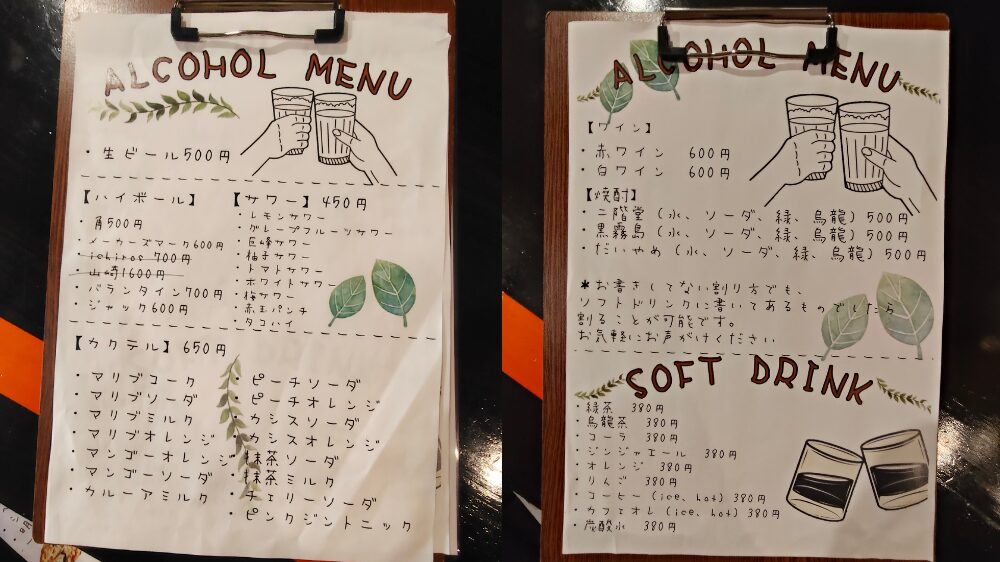 ALCOHOL MENU
・生ビール500円
【ハイボール】
・角500円
・メーカーズマーク600円
・ichiros 700円
・山崎1600円
・バランタイン700円
・ジャック600円
【サワー】450円
・レモンサワー
・グレープフルーツサワー
・巨峰サワー
・柚子サワー
・トマトサワー
・ホワイトサワー
・梅サワー
・赤玉パンチ
・タコハイ
【カクテル】650円
・マリブコーク
・マリブソーダ
・マリブミルク
・マリブオレンジ
・マンゴーオレンジ
・マンゴーソーダ
・カルーアミルク
・ピーチソーダ
・ピーチオレンジ
・カシスソーダ
・カシスオレンジ
・抹茶ソーダ
・抹茶ミルク
・チェリーソーダ
・ピンクジントニック
ALCOHOL MENU
【ワイン】
・赤ワイン 600円
・白ワイン 600円
【焼酎】
・二階堂(水、ソーダ、緑、烏龍)500円
・黒霧島(水、ソーダ、緑、烏龍)500円
・だいやめ(水、ソーダ、緑、烏龍)500円
*お書きしてない割り方でも、
ソフトドリンクに書いてあるものでしたら
割ることが可能です。
お気軽にお声がけください
SOFT DRINK
・緑茶 380円
・烏龍茶 380円
・コーラ 380円
・ジンジャエール 380円
・オレンジ 380円
・りんご 380円
・コーヒー(ice、hot)380円
・カフェオレ(ice、hot)380円
・炭酸水 380円